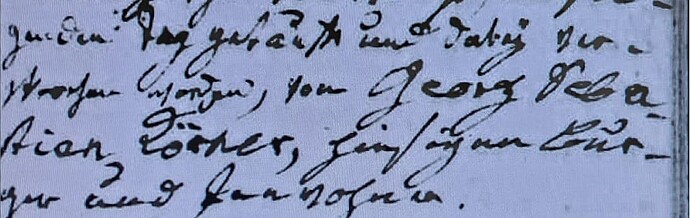 Tag getauft und dabey ver-
sprochen worden, von Georg Seba-
stien Körner, hiesigen Bur-
ger und Innwohner.